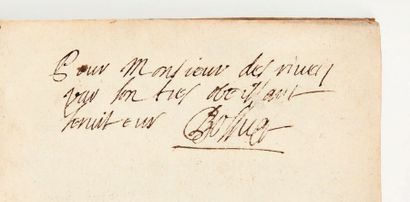 Pour Monsieur des rives
par son tres obeissant
seruiteur Bossuet